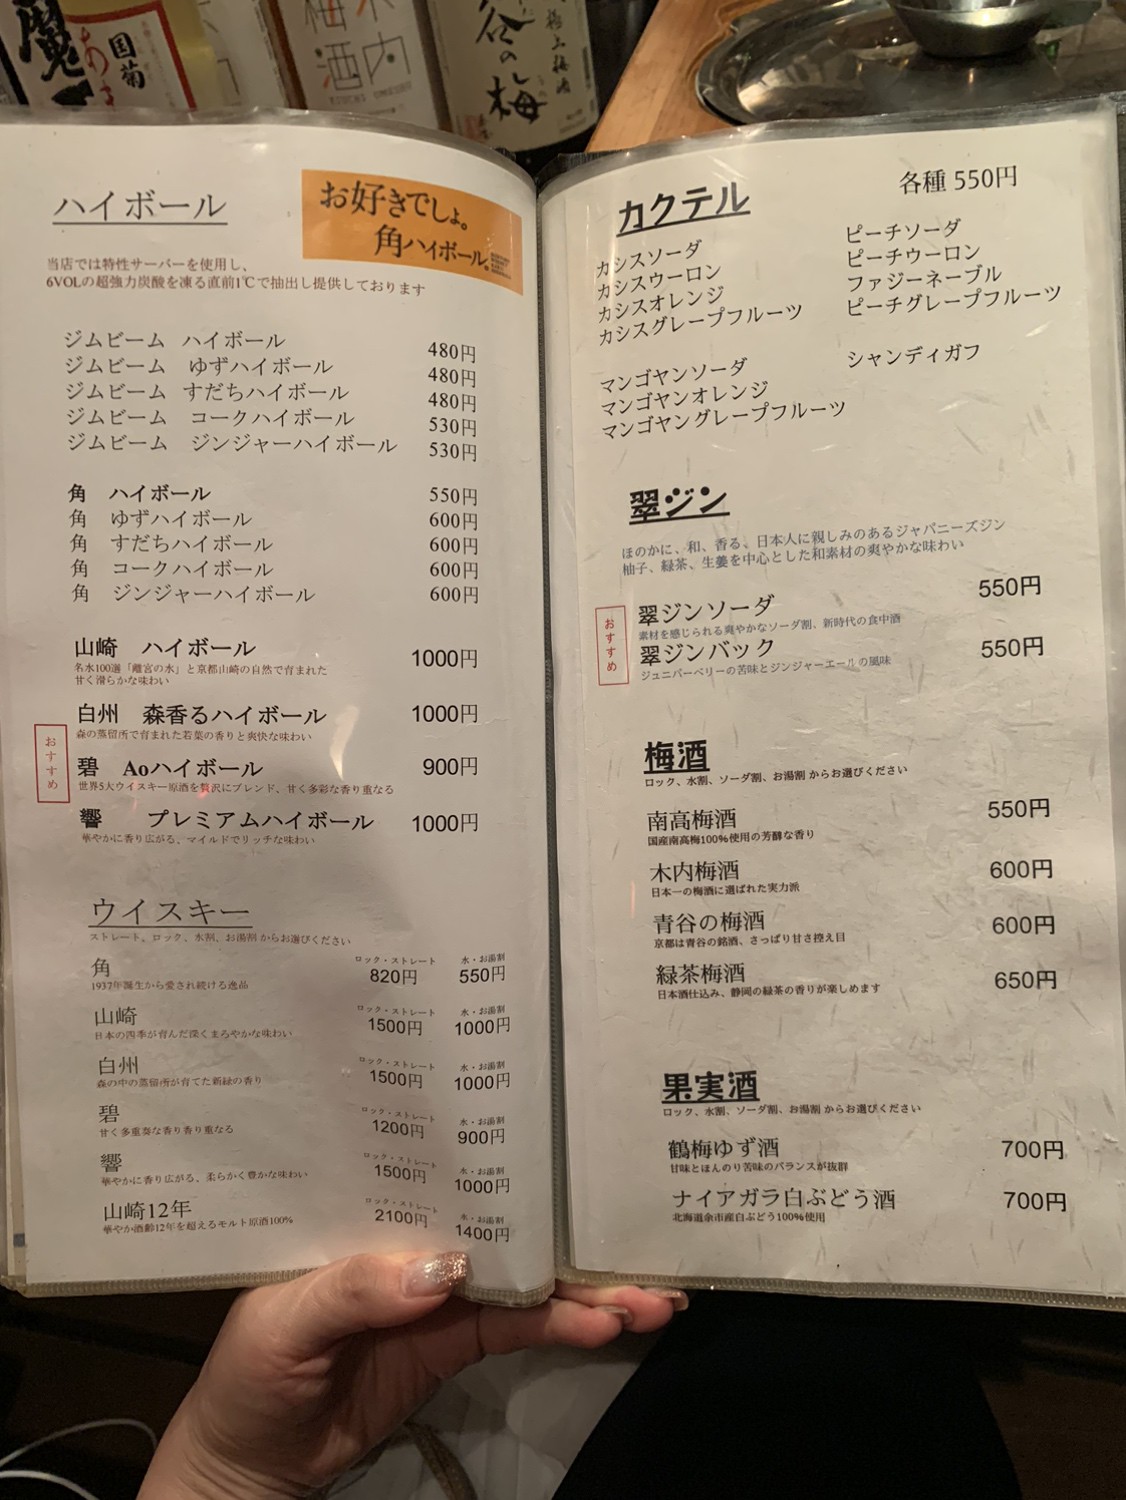 魔
国菊
あま
梅酒
木内
KIUCHI UMESHU
谷の梅
極上梅酒
ハイボール
お好きでしょ。
角ハイボール。
当店では特性サーバーを使用し、
6VOLの超強力炭酸を凍る直前1℃で抽出し提供しております
ジムビーム ハイボール 480円
ジムビーム ゆずハイボール 480円
ジムビーム すだちハイボール 480円
ジムビーム コークハイボール 530円
ジムビーム ジンジャーハイボール 530円
角 ハイボール 550円
角 ゆずハイボール 600円
角 すだちハイボール 600円
角 コークハイボール 600円
角 ジンジャーハイボール 600円
山崎 ハイボール 1000円
名水100選「離宮の水」と京都山崎の自然で育まれた
甘く滑らかな味わい
白州 森香るハイボール 1000円
森の蒸留所で育まれた若葉の香りと爽快な味わい
おすすめ
碧 Aoハイボール 900円
世界5大ウイスキー原酒を贅沢にブレンド、甘く多彩な香り重なる
響 プレミアムハイボール 1000円
華やかに香り広がる、マイルドでリッチな味わい
ウイスキー
ストレート、ロック、水割、お湯割 からお選びください
角 ロック・ストレート 820円 水・お湯割 550円
1937年誕生から愛され続ける逸品
山崎 ロック・ストレート 1500円 水・お湯割 1000円
日本の四季が育んだ深くまろやかな味わい
白州 ロック・ストレート 1500円 水・お湯割 1000円
森の中の蒸留所が育てた新緑の香り
碧 ロック・ストレート 1200円 水・お湯割 900円
甘く多重奏な香り香り重なる
響 ロック・ストレート 1500円 水・お湯割 1000円
華やかに香り広がる、柔らかく豊かな味わい
山崎12年 ロック・ストレート 2100円 水・お湯割 1400円
華やか酒齢12年を超えるモルト原酒100%
カクテル 各種 550円
カシスソーダ
カシスウーロン
カシスオレンジ
カシスグレープフルーツ
ピーチソーダ
ピーチウーロン
ファジーネーブル
ピーチグレープフルーツ
マンゴヤンソーダ
マンゴヤンオレンジ
マンゴヤングレープフルーツ
シャンディガフ
翠ジン
ほのかに、和、香る、日本人に親しみのあるジャパニーズジン
柚子、緑茶、生姜を中心とした和素材の爽やかな味わい
おすすめ
翠ジンソーダ 550円
素材を感じられる爽やかなソーダ割、新時代の食中酒
翠ジンバック 550円
ジュニパーベリーの苦味とジンジャーエールの風味
梅酒
ロック、水割、ソーダ割、お湯割 からお選びください
南高梅酒 550円
国産南高梅100%使用の芳醇な香り
木内梅酒 600円
日本一の梅酒に選ばれた実力派
青谷の梅酒 600円
京都は青谷の銘酒、さっぱり甘さ控え目
緑茶梅酒 650円
日本酒仕込み、静岡の緑茶の香りが楽しめます
果実酒
ロック、水割、ソーダ割、お湯割 からお選びください
鶴梅ゆず酒 700円
甘味とほんのり苦味のバランスが抜群
ナイアガラ白ぶどう酒 700円
北海道余市産白ぶどう100%使用